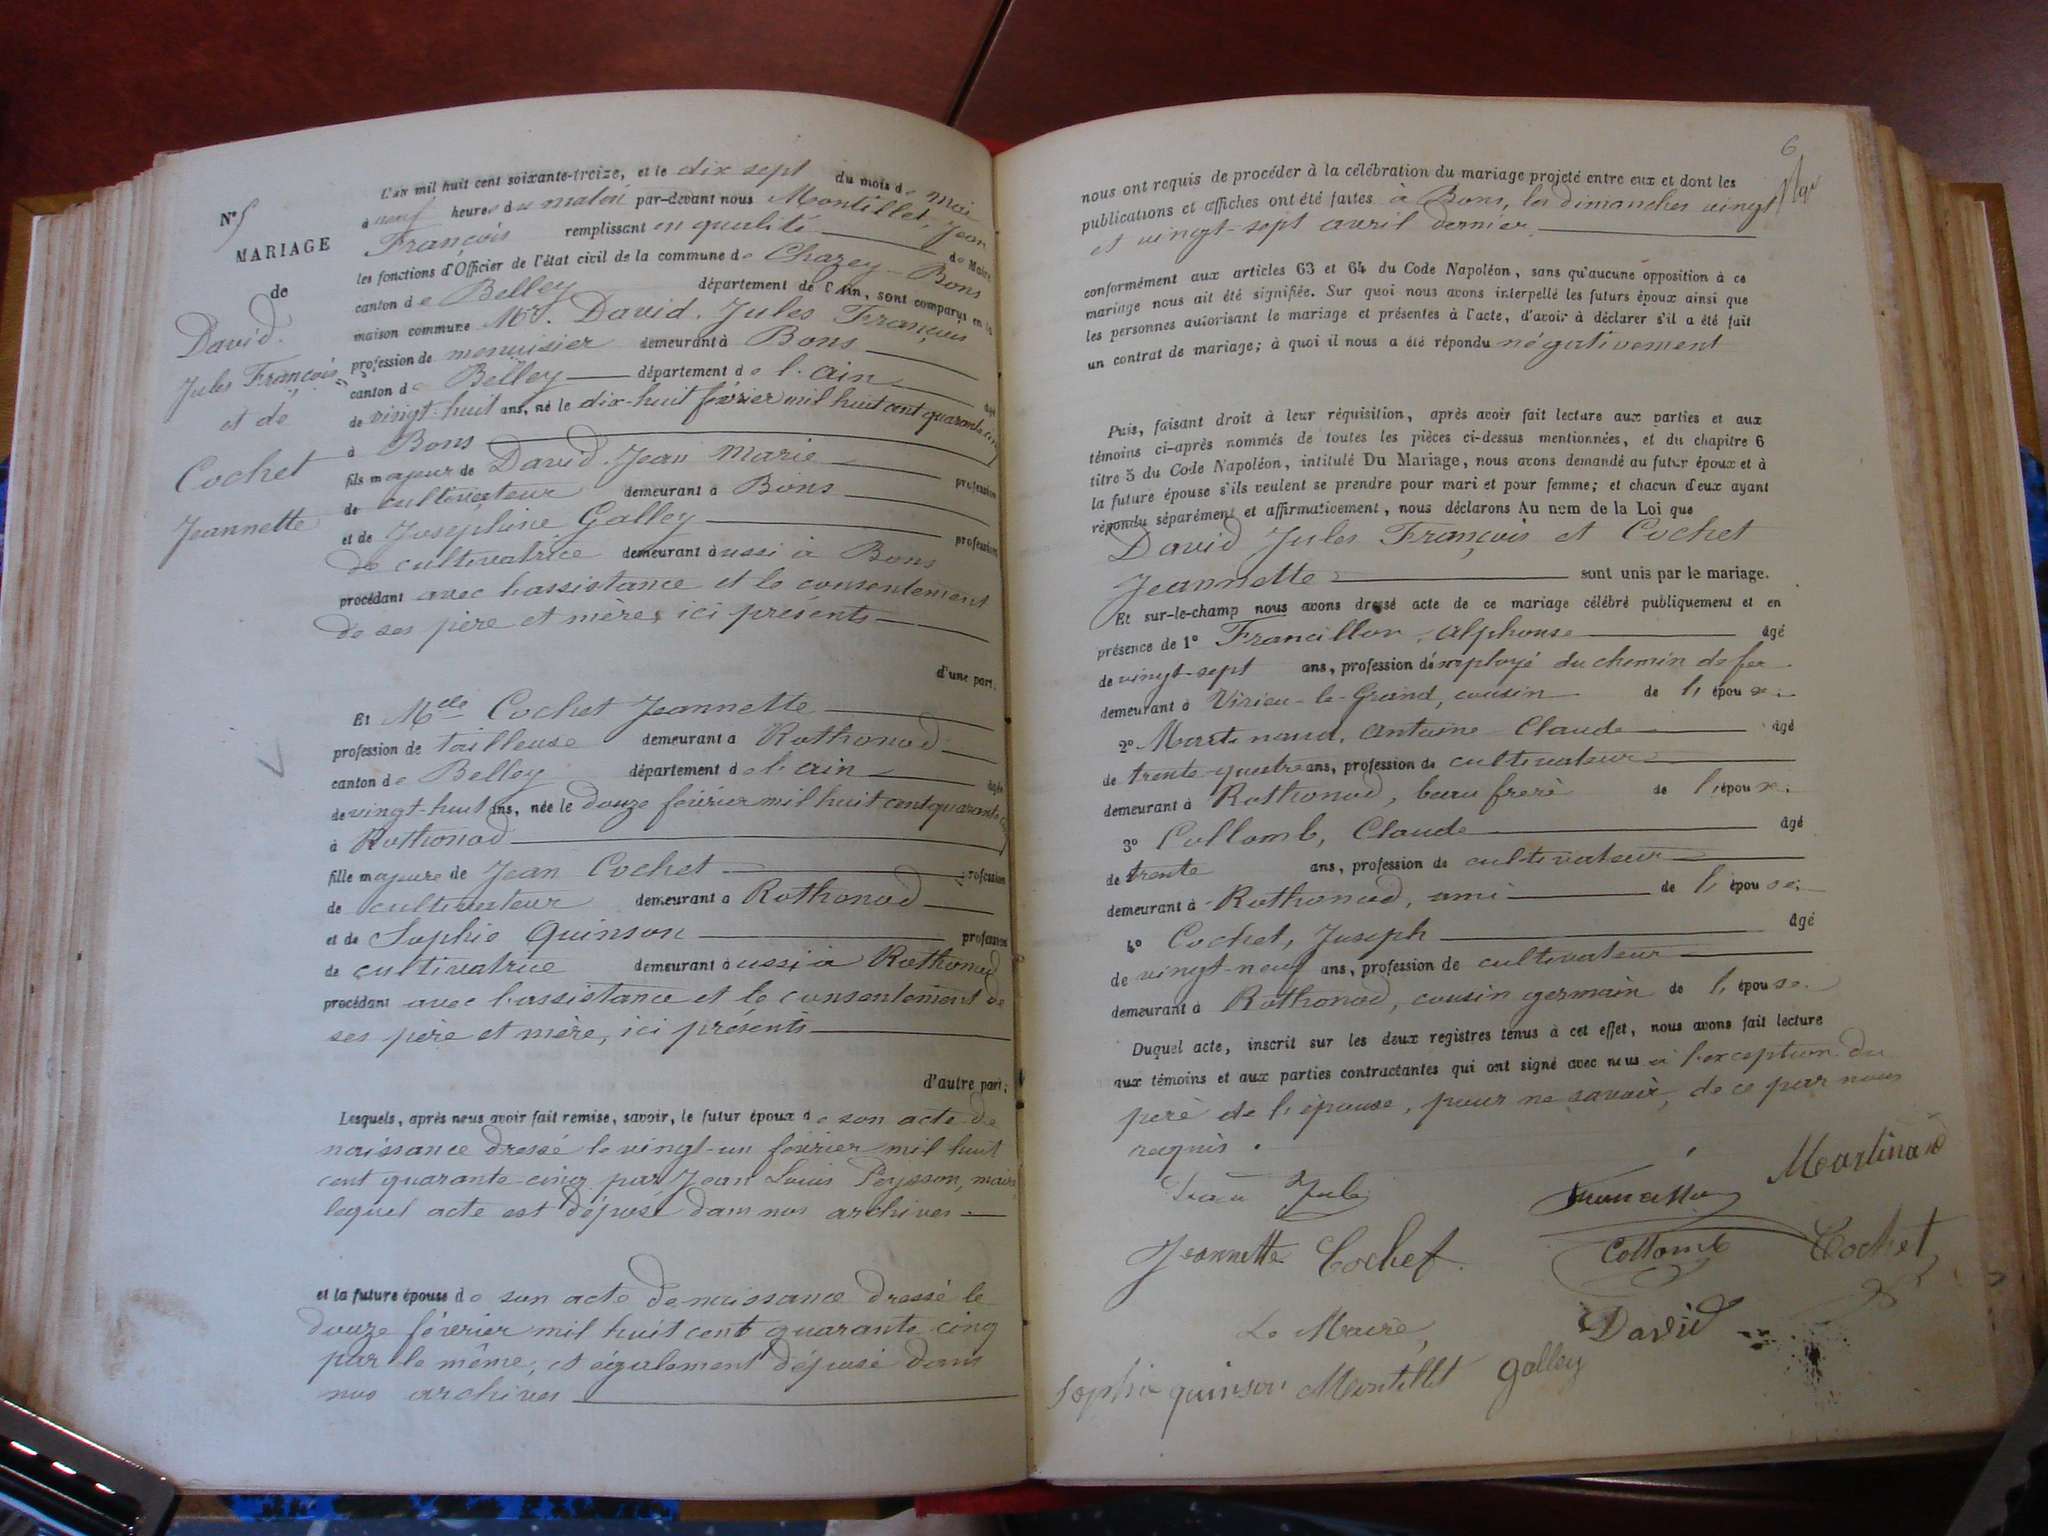 L'an mil huit cent soixante-treize, et le dix sept du mois de mai
à neuf heures du matin par-devant nous Montillet, Jean
François remplissant en qualité de Maire
les fonctions d'Officier de l'état civil de la commune de Chazey-Bons
canton de Belley département de l'Ain, sont comparus en la
maison commune Mr. David, Jules François
profession de menuisier demeurant à Bons
canton de Belley département de l'ain âgé
de vingt-huit ans, né le dix-huit février mil huit cent quarante cinq
à Bons
fils majeur de David, Jean Marie profession
de cultivateur demeurant à Bons
et de Josephine Galley profession
de cultivatrice demeurant aussi à Bons
procédant avec l'assistance et le consentement
de ses père et mère, ici présents
d'une part.
Et Melle Cochet Jeannette
profession de tailleuse demeurant à Rothonod
canton de Belley département de l'ain âgée
de vingt-huit ans, née le douze février mil huit cent quarante cinq
à Rothonod
fille majeure de Jean Cochet profession
de cultivateur demeurant à Rothonod
et de Sophie Quinson profession
de cultivatrice demeurant aussi à Rothonod
procédant avec l'assistance et le consentement de
ses père et mère, ici présents
d'autre part;
Lesquels, après nous avoir fait remise, savoir, le futur époux de son acte de
naissance dressé le vingt-un février mil huit
cent quarante-cinq par Jean Louis Peysson, maire
lequel acte est déposé dans nos archives
et la future épouse de son acte de naissance dressé le
douze février mil huit cent quarante cinq
par le même, et également déposé dans
nos archives
N° 5
MARIAGE
de
David
Jules François
et de
Cochet
Jeannette
6
nous ont requis de procéder à la célébration du mariage projeté entre eux et dont les
publications et affiches ont été faites à Bons, les dimanches vingt
et vingt-sept avril dernier
conformément aux articles 63 et 64 du Code Napoléon, sans qu'aucune opposition à ce
mariage nous ait été signifiée. Sur quoi nous avons interpellé les futurs époux ainsi que
les personnes autorisant le mariage et présentes à l'acte, d'avoir à déclarer s'il a été fait
un contrat de mariage; à quoi il nous a été répondu négativement
Puis, faisant droit à leur réquisition, après avoir fait lecture aux parties et aux
témoins ci-après nommés de toutes les pièces ci-dessus mentionnées, et du chapitre 6
titre 5 du Code Napoléon, intitulé Du Mariage, nous avons demandé au futur époux et à
la future épouse s'ils veulent se prendre pour mari et pour femme; et chacun d'eux ayant
répondu séparément et affirmativement, nous déclarons Au nom de la Loi que
David Jules François et Cochet
Jeannette sont unis par le mariage.
Et sur-le-champ nous avons dressé acte de ce mariage célébré publiquement et en
présence de 1° Francillon, Alphonse âgé
de vingt-sept ans, profession d'employé du chemin de fer
demeurant à Virieu-le-Grand, cousin de l'épouse.
2° Martinand, Antoine Claude âgé
de trente-quatre ans, profession de cultivateur
demeurant à Rothonod, beau frère de l'épouse.
3° Collomb, Claude âgé
de trente ans, profession de cultivateur
demeurant à Rothonod, ami de l'épouse.
4° Cochet, Joseph âgé
de vingt-neuf ans, profession de cultivateur
demeurant à Rothonod, cousin germain de l'épouse.
Duquel acte, inscrit sur les deux registres tenus à cet effet, nous avons fait lecture
aux témoins et aux parties contractantes qui ont signé avec nous à l'exception du
père de l'épouse, pour ne savoir, de ce par nous
requis.
Jules Francillon Martinand
Jeannette Cochet Collomb Cochet
Le Maire, David
Sophie quinson Montillet galley